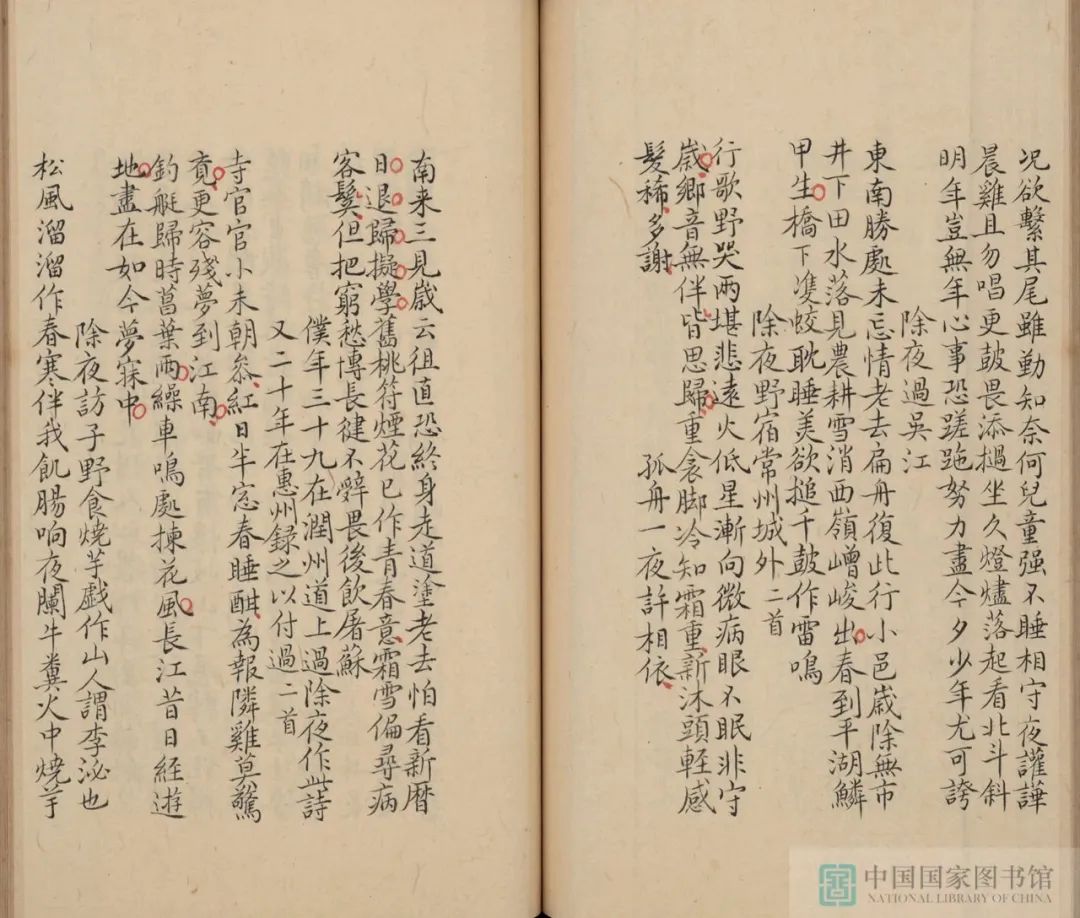 况欲繫其尾雖勤知奈何兒童强不睡相守夜讙譁
晨雞且勿唱更鼓畏添撾坐久燈燼落起看北斗斜
明年豈無年心事恐蹉跎努力盡今夕少年尤可誇
除夜過吳江
東南勝處未忘情老去扁舟復此行小邑歲除無市
井下田水落見農耕雪消西嶺嶒峻出春到平湖鱗
甲生橋下雙蛟耽睡美欲搥千鼓作雷鳴
除夜野宿常州城外二首
行歌野哭兩堪悲遠火低星漸向微病眼不眠非守
歲鄉音無伴皆思歸重衾脚冷知霜重新沐頭輕感
髮稀多謝孤舟一夜許相依
南来三見歲云徂直恐終身走道塗老去怕看新曆
日退歸擬學舊桃符煙花已作青春意霜雪偏尋病
客鬓但把窮愁博長健不辤畏後飲屠蘇
僕年三十九在潤州道上過除夜作此詩
又二十年在惠州録之以付過二首
寺官官小未朝叅紅日半窓春睡酣為報隣雞莫驚
竟更容殘夢到江南
釣艇歸時菖葉雨繰車鳴處揀花風長江昔日経遊
地盡在如今夢寐中
除夜訪子野食燒芋戲作山人謂李泌也
松風溜溜作春寒伴我飢腸响夜闌牛糞火中燒芋
中国国家图书馆
NATIONAL LIBRARY OF CHINA